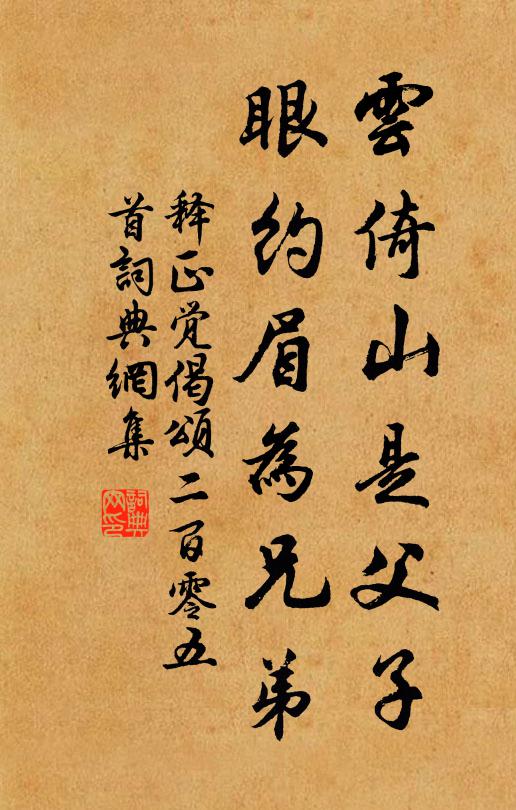 雲倚山是父子
眼約眉為兄弟
释正覚偈頌二百零五
首詞典網集
詞典
网印